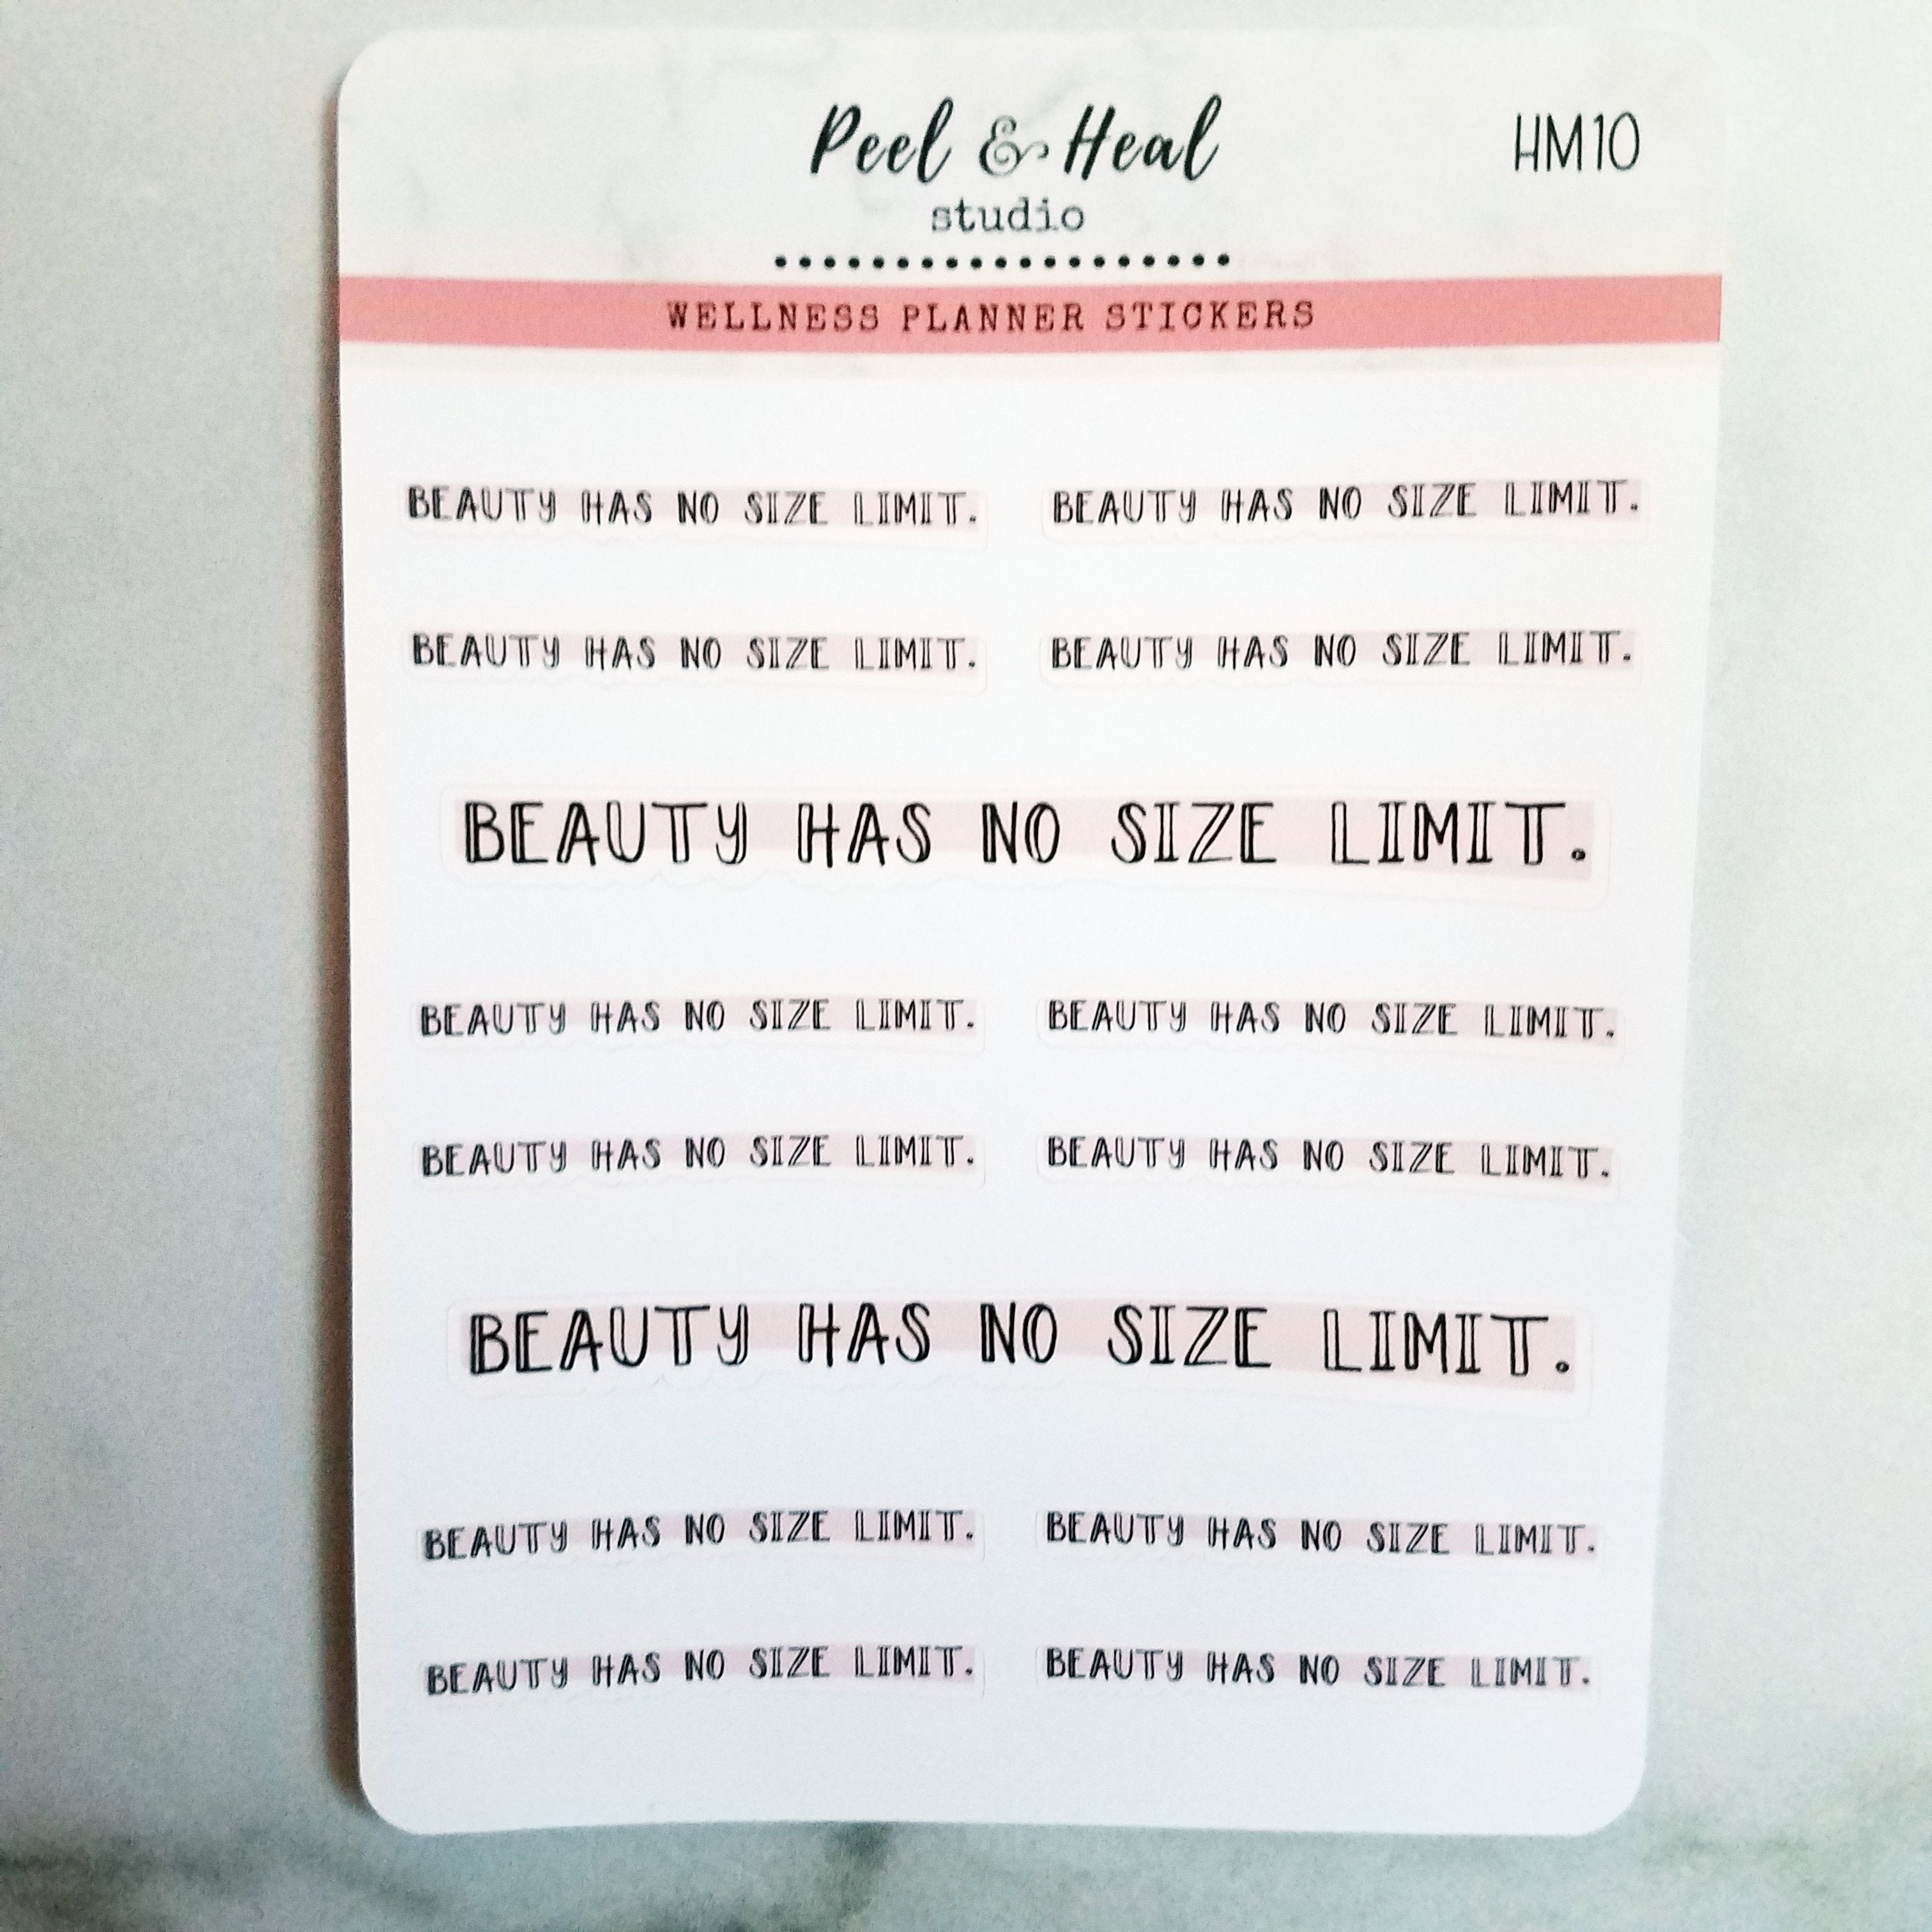 Peel & Heal
HM10
studio
WELLNESS PLANNER STICKERS
BEAUTY HAS NO SIZE LIMIT. BEAUTY HAS NO SIZE LIMIT.
BEAUTY HAS NO SIZE LIMIT. BEAUTY HAS NO SIZE LIMIT.
BEAUTY HAS NO SIZE LIMIT.
BEAUTY HAS NO SIZE LIMIT. BEAUTY HAS NO SIZE LIMIT.
BEAUTY HAS NO SIZE LIMIT. BEAUTY HAS NO SIZE LIMIT.
BEAUTY HAS NO SIZE LIMIT.
BEAUTY HAS NO SIZE LIMIT. BEAUTY HAS NO SIZE LIMIT.
BEAUTY HAS NO SIZE LIMIT. BEAUTY HAS NO SIZE LIMIT.